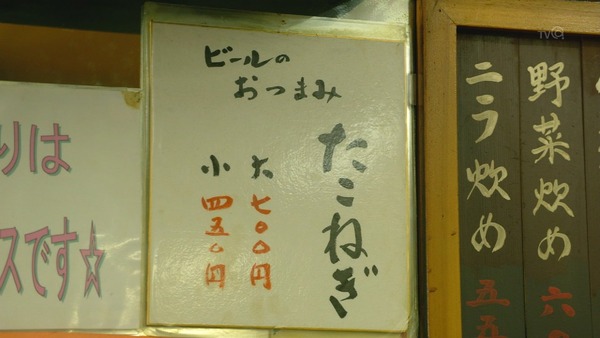 ビールの
おつまみ
たこねぎ
大 七〇〇円
小 四五〇円
野菜炒め 六〇
ニラ炒め 五五
りは
スです☆
TVQ